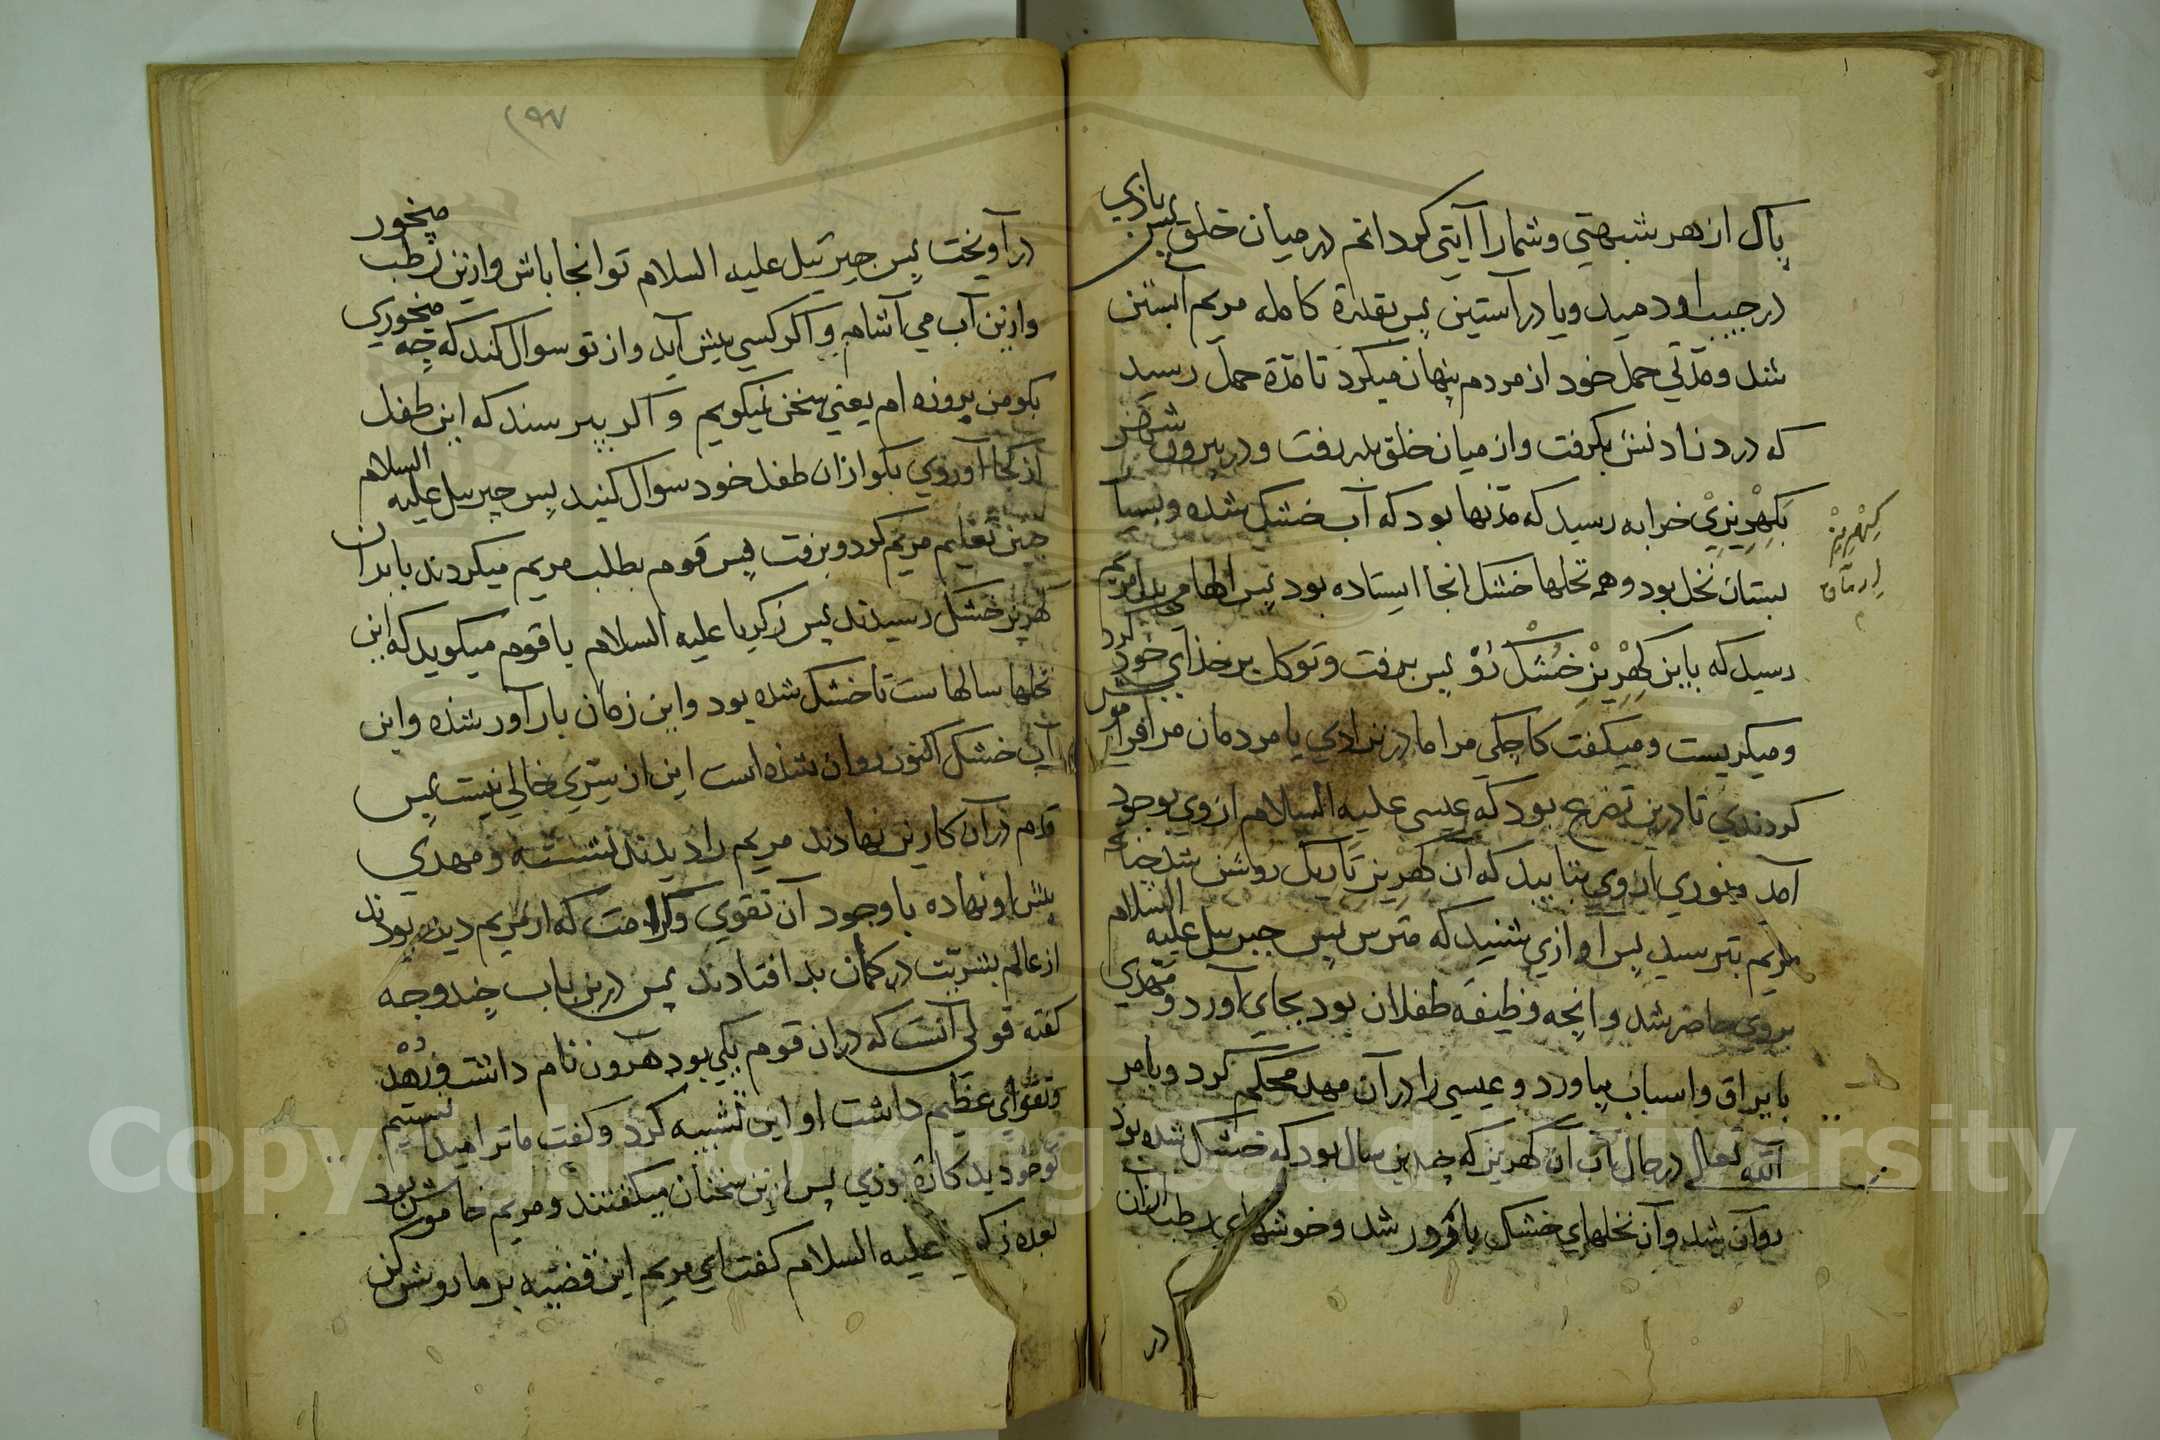 پاک از هر شبهتی و شمارا آیتی کردانم در میان خلق پس بازی
در جیب او دمید و یا در آستین پس بقدرة کامله مریم آبستن
شد و مدتی حمل خود از مردم پنهان میکرد تا مدة حمل رسید
که درد زادنش بکرفت و از میان خلق بدر رفت و در بیرون شهر
بکهریزی خرابه رسید که مدتها بود که آب خشک شده و بسیا
بستان نخل بود و همه نخلها خشک انجا ایستاده بود پس الهامی بدل مریم
رسید که باین کهریز خشک رو پس برفت و توکل بر خذای خود کرد
و میکریست و میکفت کاجکی مرا مادر نزادی یا مردمان مرا فراموش
کردندی تا درین تضرع بود که عیسی علیه السلام از وی بوجود
آمد و نوری از وی بتابید که آن کهریز تاریک روشن شد چنانچه
مریم بترسید پس آوازی شنید که مترس پس جبرییل علیه السلام
بروی حاضر شد و انچه وظیفه طفلان بود بجای آورد و مهدی
با یراق و اسباب بیاورد و عیسی را در آن مهد محکم کرد و بامر
الله تعالی در حال آب آن کهریز که چندین سال بود که خشک شده بود
روان شد و آن نخلهای خشک بارور شد و خوشهای رطب ازان
در
کهریز
۲۹۷
در آویخت پس جبرئیل علیه السلام تو انجا باش و ازین رطب میخور
و ازین آب می آشام و اکر کسی پیش آید و از تو سوال کند که چه میخوری
بکو من بروزه ام یعنی سخن نمیکویم و اکر بپرسند که این طفل
از کجا آوردی بکو از آن طفل خود سوال کنید پس جبرییل علیه السلام
چنین تعلیم مریم کرد و برفت پس قوم بطلب مریم میکردند تا بدان
کهریز خشک رسیدند پس زکریا علیه السلام با قوم میکوید که این
نخلها سالهاست تا خشک شده بود و این زمان بارآور شده و این
آب خشک اکنون روان شده است این از سری خالی نیست پس
قدم در آن کاریز نهادند مریم را دیدند نشسته و مهدی
پیش او نهاده با وجود آن تقوی و کرامت که از مریم دیده بودند
از عالم بشریت در کمان بد افتادند پس درین باب چند وجه
کفته قولی آنست که در ان قوم یکی بود هرون نام داشت و زهد
و تقوای عظیم داشت او این تشبیه کرد و کفت ما ترا میدانستیم
تو خود بدکاره بودی پس ازین سخنان میکفتند و مریم خاموش بود
بعده زکریا علیه السلام کفت ای مریم این قضیه بر ما روشن کن
Copyright © King Saud University